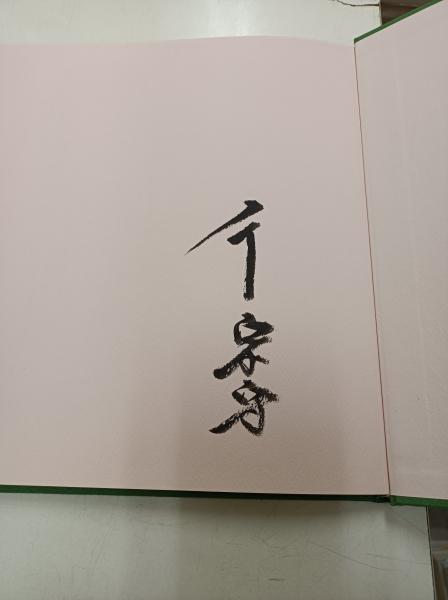 千宗守